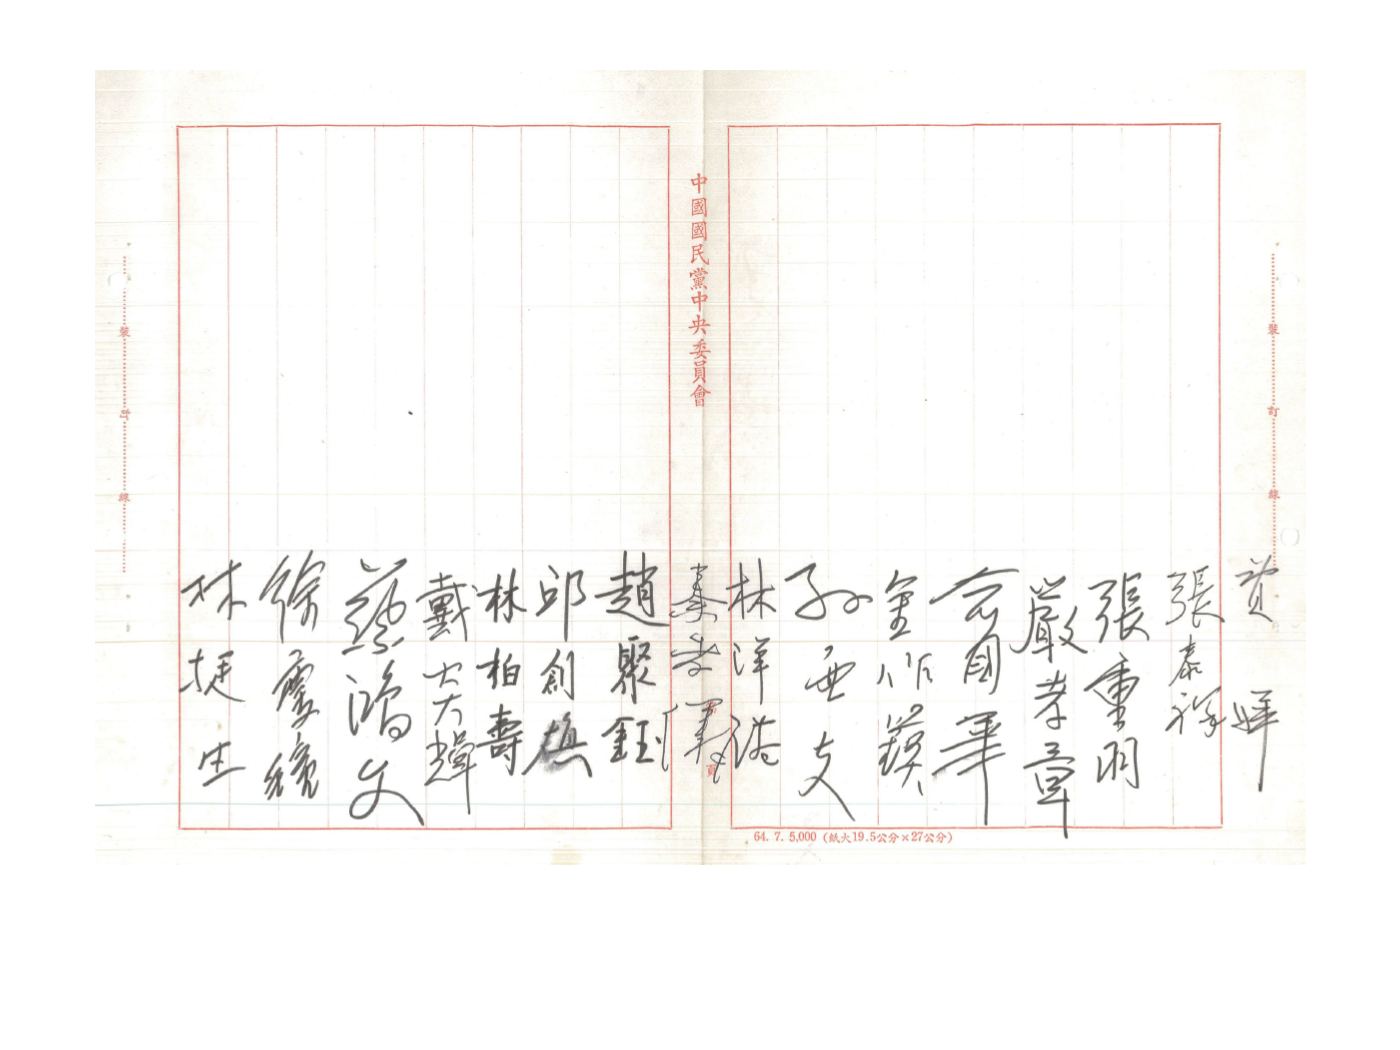 費驊
張泰祥
張重羽
嚴孝章
俞國華
金作鏌
孫亞夫
林洋港
秦孝儀
中國國民黨中央委員會
趙聚鈺
邱創煥
林柏壽
戴大輝
蔡鴻文
徐慶鐘
林挺生
裝訂線
裝訂線
64. 7. 5,000 (紙大19.5公分×27公分)